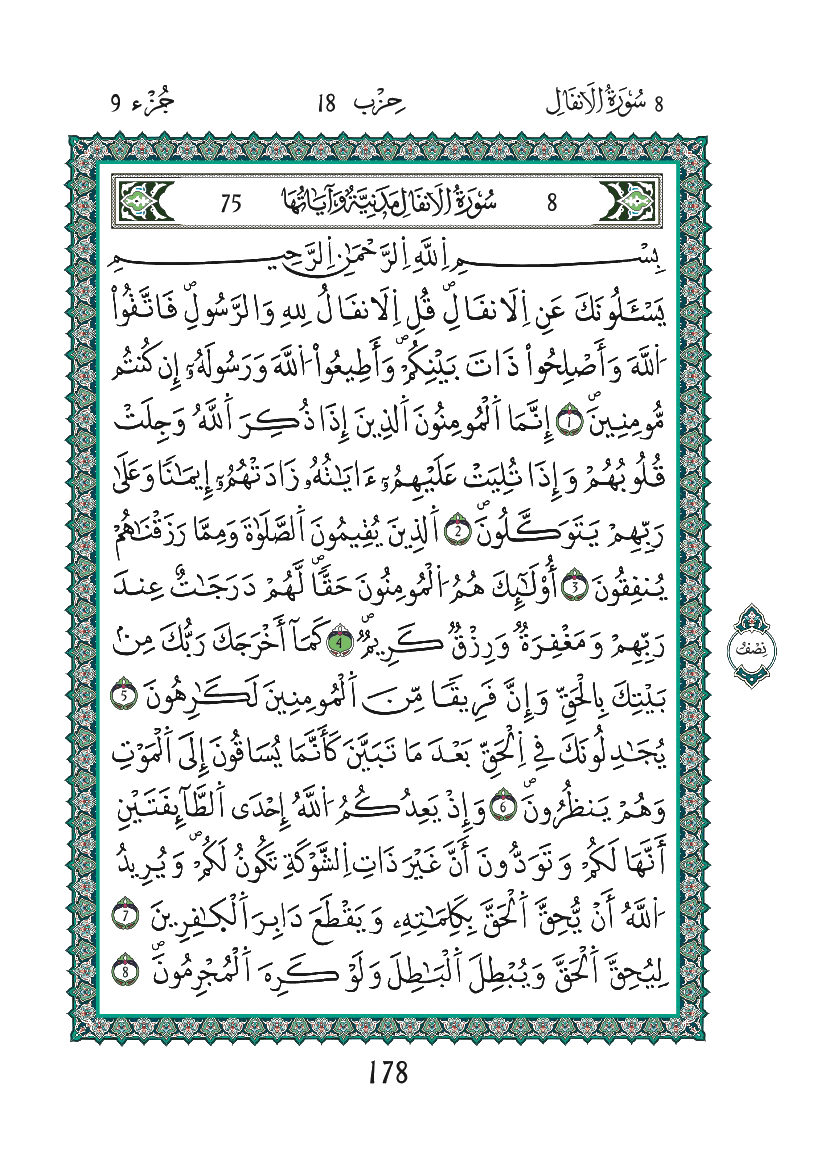 8 سُورَةُ الْأَنفَالِ حِزْب 18 جُزْء 9
8 سُورَةُ الْأَنفَالِ مَدَنِيَّةٌ وَآيَاتُهَا 75
بِسْمِ اِللَّهِ اِلرَّحْمَٰنِ اِلرَّحِيمِ
يَسْـَٔلُونَكَ عَنِ اِلَانفَالِۖ قُلِ اِلَانفَالُ لِلهِ وَالرَّسُولِۖ فَاتَّقُواْ
اُللَّهَ وَأَصْلِحُواْ ذَاتَ بَيْنِكُمْۖ وَأَطِيعُواْ اُللَّهَ وَرَسُولَهُۥٓ إِن كُنتُم
مُّومِنِينَۖ 1 إِنَّمَا اَلْمُومِنُونَ اَلذِينَ إِذَا ذُكِرَ اَللَّهُ وَجِلَتْ
قُلُوبُهُمْ وَإِذَا تُلِيَتْ عَلَيْهِمُۥٓ ءَايَٰتُهُۥ زَادَتْهُمُۥٓ إِيمَٰنًا وَعَلَىٰ
رَبِّهِمْ يَتَوَكَّلُونَۖ 2 اَلذِينَ يُقِيمُونَ اَلصَّلَوٰةَ وَمِمَّا رَزَقْنَٰهُمْ
يُنفِقُونَ 3 أُوْلَٰٓئِكَ هُمُ اُلْمُومِنُونَ حَقّٗاۖ لَّهُمْ دَرَجَٰتٌ عِندَ
رَبِّهِمْ وَمَغْفِرَةٌ وَرِزْقٌ كَرِيمٌۖ 4 كَمَآ أَخْرَجَكَ رَبُّكَ مِنۢ
بَيْتِكَ بِالْحَقِّ وَإِنَّ فَرِيقًا مِّنَ اَلْمُومِنِينَ لَكَٰرِهُونَ 5
يُجَٰدِلُونَكَ فِي اِلْحَقِّ بَعْدَ مَا تَبَيَّنَ كَأَنَّمَا يُسَاقُونَ إِلَى اَلْمَوْتِ
وَهُمْ يَنظُرُونَۖ 6 وَإِذْ يَعِدُكُمُ اُللَّهُ إِحْدَى اَلطَّآئِفَتَيْنِ
أَنَّهَا لَكُمْ وَتَوَدُّونَ أَنَّ غَيْرَ ذَاتِ اِلشَّوْكَةِ تَكُونُ لَكُمْۖ وَيُرِيدُ
اُللَّهُ أَنْ يُّحِقَّ اَلْحَقَّ بِكَلِمَٰتِهِۦ وَيَقْطَعَ دَابِرَ اَلْكَٰفِرِينَ 7
لِيُحِقَّ اَلْحَقَّ وَيُبْطِلَ اَلْبَٰطِلَ وَلَوْ كَرِهَ اَلْمُجْرِمُونَۖ 8
نِصْف
178